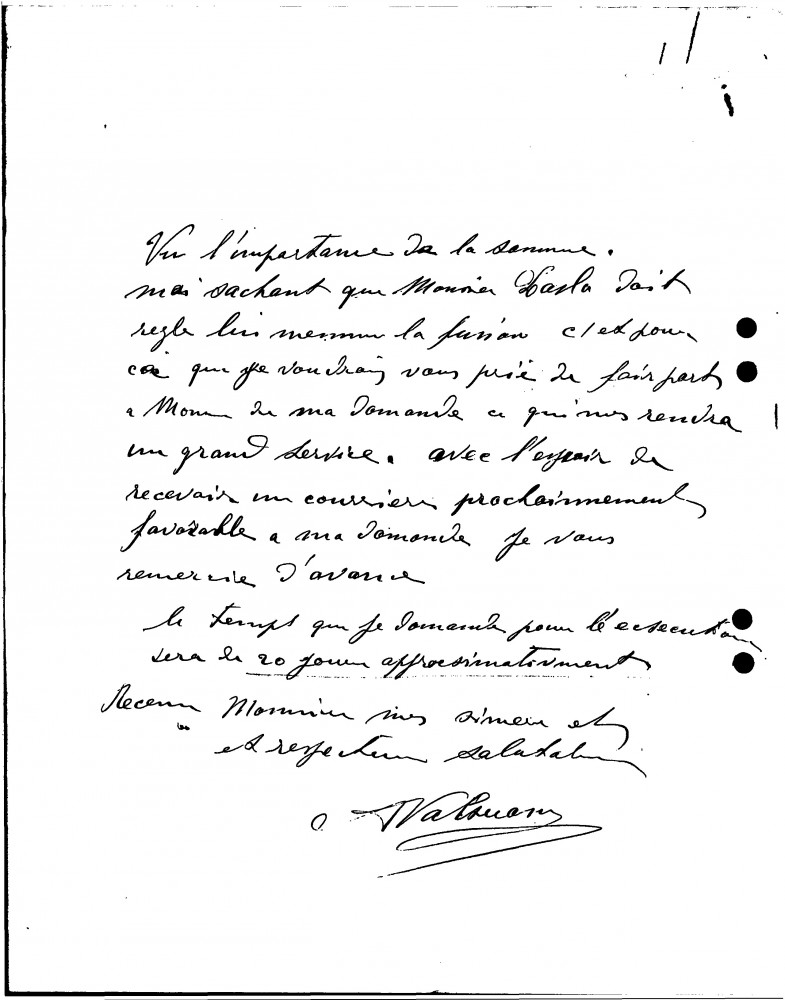 Vu l'importance de la somme.
mai sachant que Monsieur doit
regle lui memme la fusion c'est pour
que je voudrais vous prié de fair part
a Monsieur de ma demande ce qui nous rendra
un grand service. avec l'espoir de
recevoir un courriere prochainnement
favorable a ma domande je vous
remercie d'avance
le temps que je domande pour l'éxsecution
sera de 20 jours approximativment
Recever Monsieur mes sincere et
et respectueu salutation